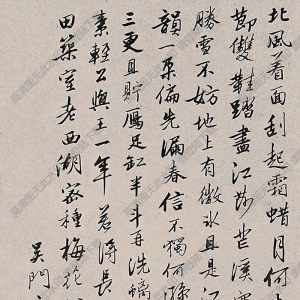 北風看面刮起霜蜡月何
節雙鞋踏盡江妨老溪雪
勝雪不妨地上有微冰且是江
韻一朵偏先漏春信不獨何
三更且貯鳳足缸半斗再洗螭
素輕公與王一年若得長
田築室老西湖密種梅花
吳門